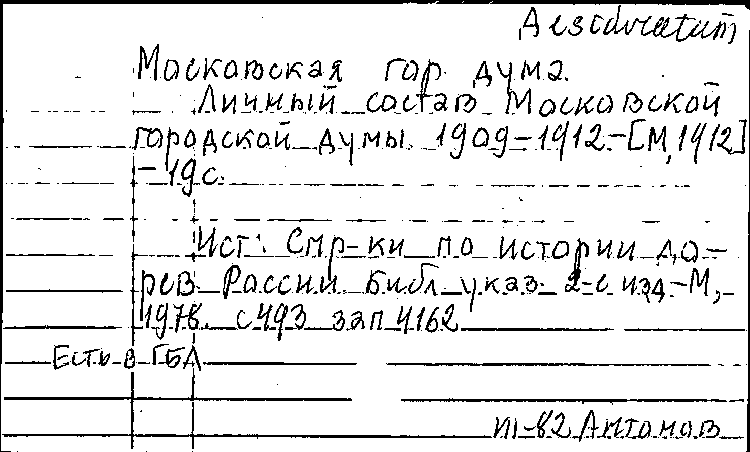 Desideratum
Московская гор дума.
Личный состав Московской
городской думы. 1909-1912.-[М, 1912]
- 19 с.
Ист: Спр-ки по истории до-
рев. России. Библ. указ. 2-е изд.-М,
1978. с 493 зап 4162
Есть в ГБЛ
III-82 Антонов